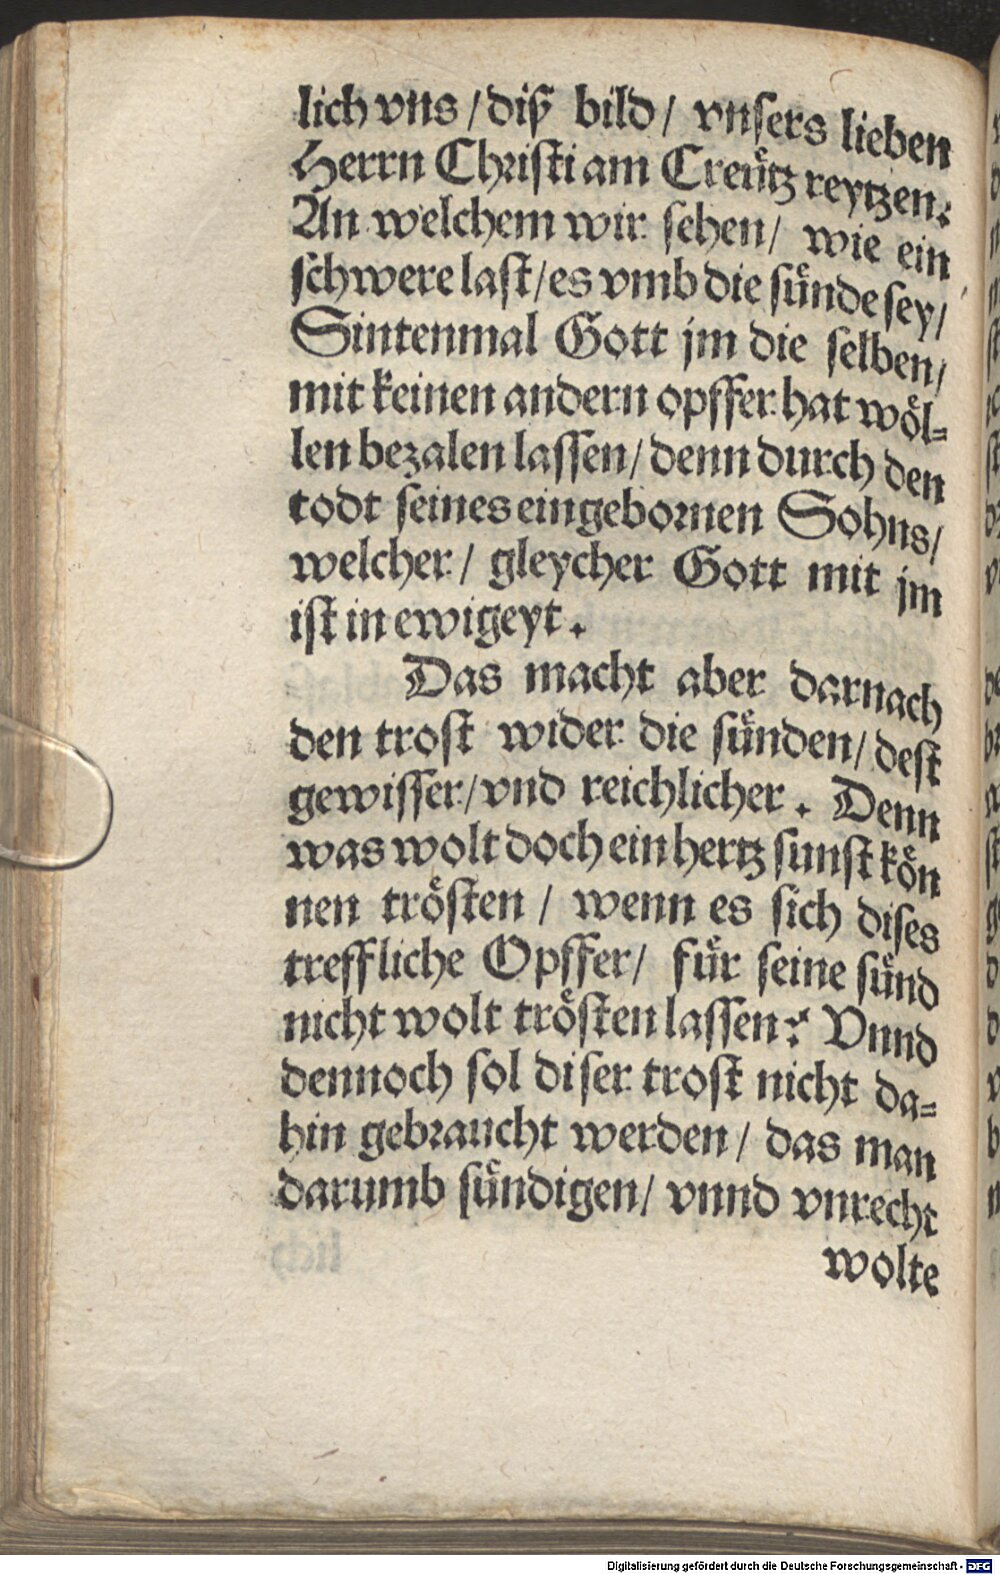 lich vns / diß bild / vnsers lieben
Herrn Christi am Creütz reytzen.
An welchem wir sehen / wie ein
schwere last / es vmb die sünde sey /
Sintenmal Gott jm die selben /
mit keinen andern opffer hat wöl=
len bezalen lassen / denn durch den
todt seines eingebornen Sohns /
welcher / gleycher Gott mit jm
ist in ewigeyt.
Das macht aber darnach
den trost wider die sünden / dest
gewisser / vnd reichlicher. Denn
was wolt doch ein hertz sunst kön
nen trösten / wenn es sich dises
treffliche Opffer / für seine sünd
nicht wolt trösten lassen? Vnnd
dennoch sol diser trost nicht da=
hin gebraucht werden / das man
darumb sündigen / vnnd vnrecht
wolte
Digitalisierung gefördert durch die Deutsche Forschungsgemeinschaft - DFG